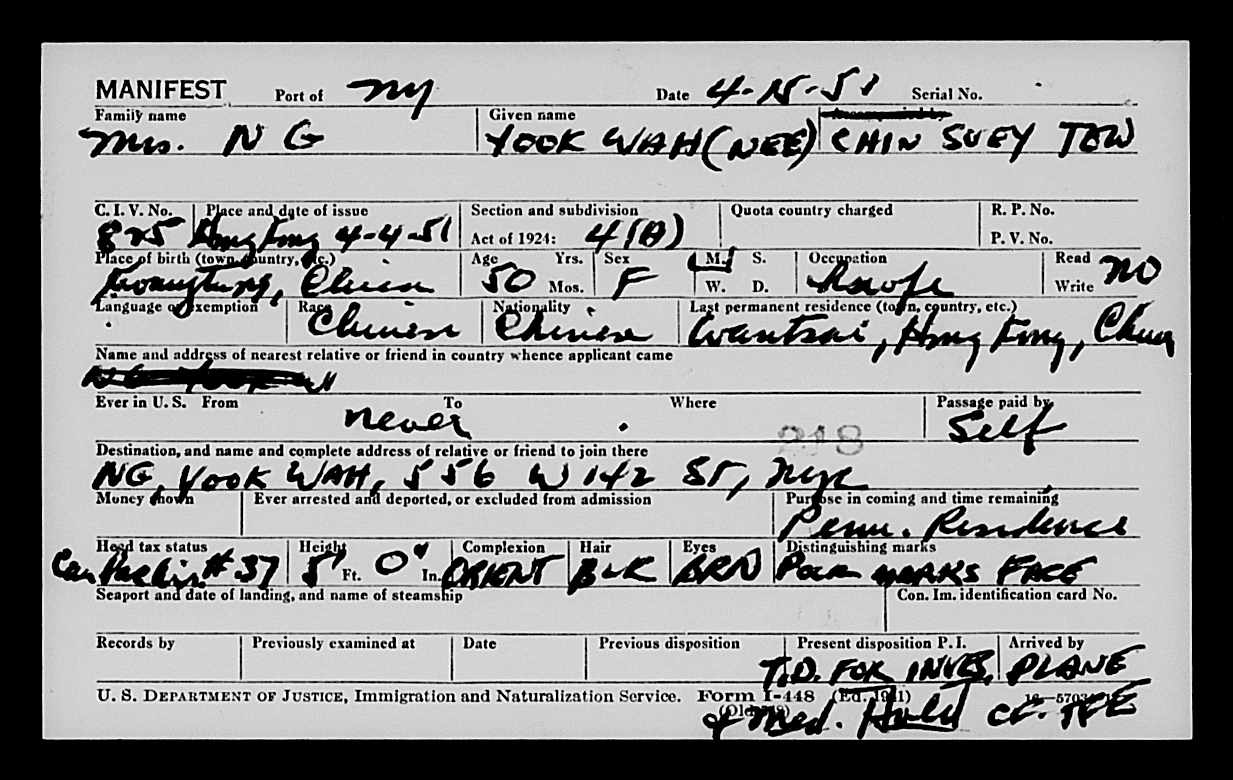 MANIFEST Port of NY Date 4-15-51 Serial No.
Family name Given name
Mrs. NG YOOK WAH (NEE) CHIN SUEY TOW
C. I. V. No. Place and date of issue Section and subdivision Quota country charged R. P. No.
825 Hong Kong 4-4-51 Act of 1924: 4(A) P. V. No.
Place of birth (town, country, etc.) Age Yrs. Sex M. S. Occupation Read
Kwangtung, China 50 Mos. F W. D. Hswfe Write NO
Language or exemption Race Nationality Last permanent residence (town, country, etc.)
Chinese Chinese Wantsai, Hong Kong, China
Name and address of nearest relative or friend in country whence applicant came
Ever in U. S. From To Where Passage paid by
never Self
218
Destination, and name and complete address of relative or friend to join there
NG, YOOK WAH, 556 W 142 ST, NYC
Money shown Ever arrested and deported, or excluded from admission Purpose in coming and time remaining
Perm. Residence
Head tax status Height Complexion Hair Eyes Distinguishing marks
#37 5 Ft. 0" In. ORIENT BLK BRN POCK MARKS FACE
Seaport and date of landing, and name of steamship Con. Im. identification card No.
Records by Previously examined at Date Previous disposition Present disposition P. I. Arrived by
T.D. FOR INVES. PLANE
U. S. DEPARTMENT OF JUSTICE, Immigration and Naturalization Service. Form I-448 (Ed. 1941)
& Med. Hold